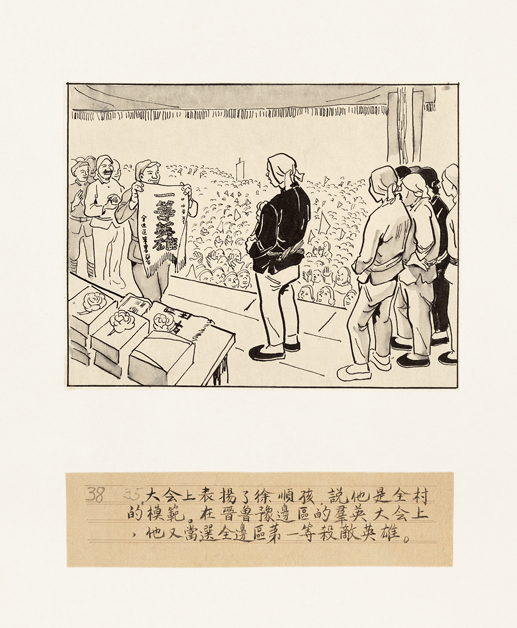 一等英雄
38 35 大会上表揚了徐順孩，説他是全村
的模範。在晉魯豫邊區的羣英大会上
，他又當選全邊區第一等殺敵英雄。